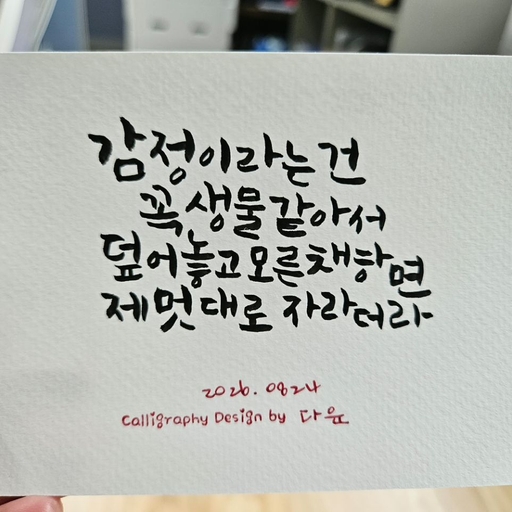 감정이라는건
꼭 생물 같아서
덮어놓고 모른채하면
제멋대로 자라더라
2026. 0824
Calligraphy Design by 다윤